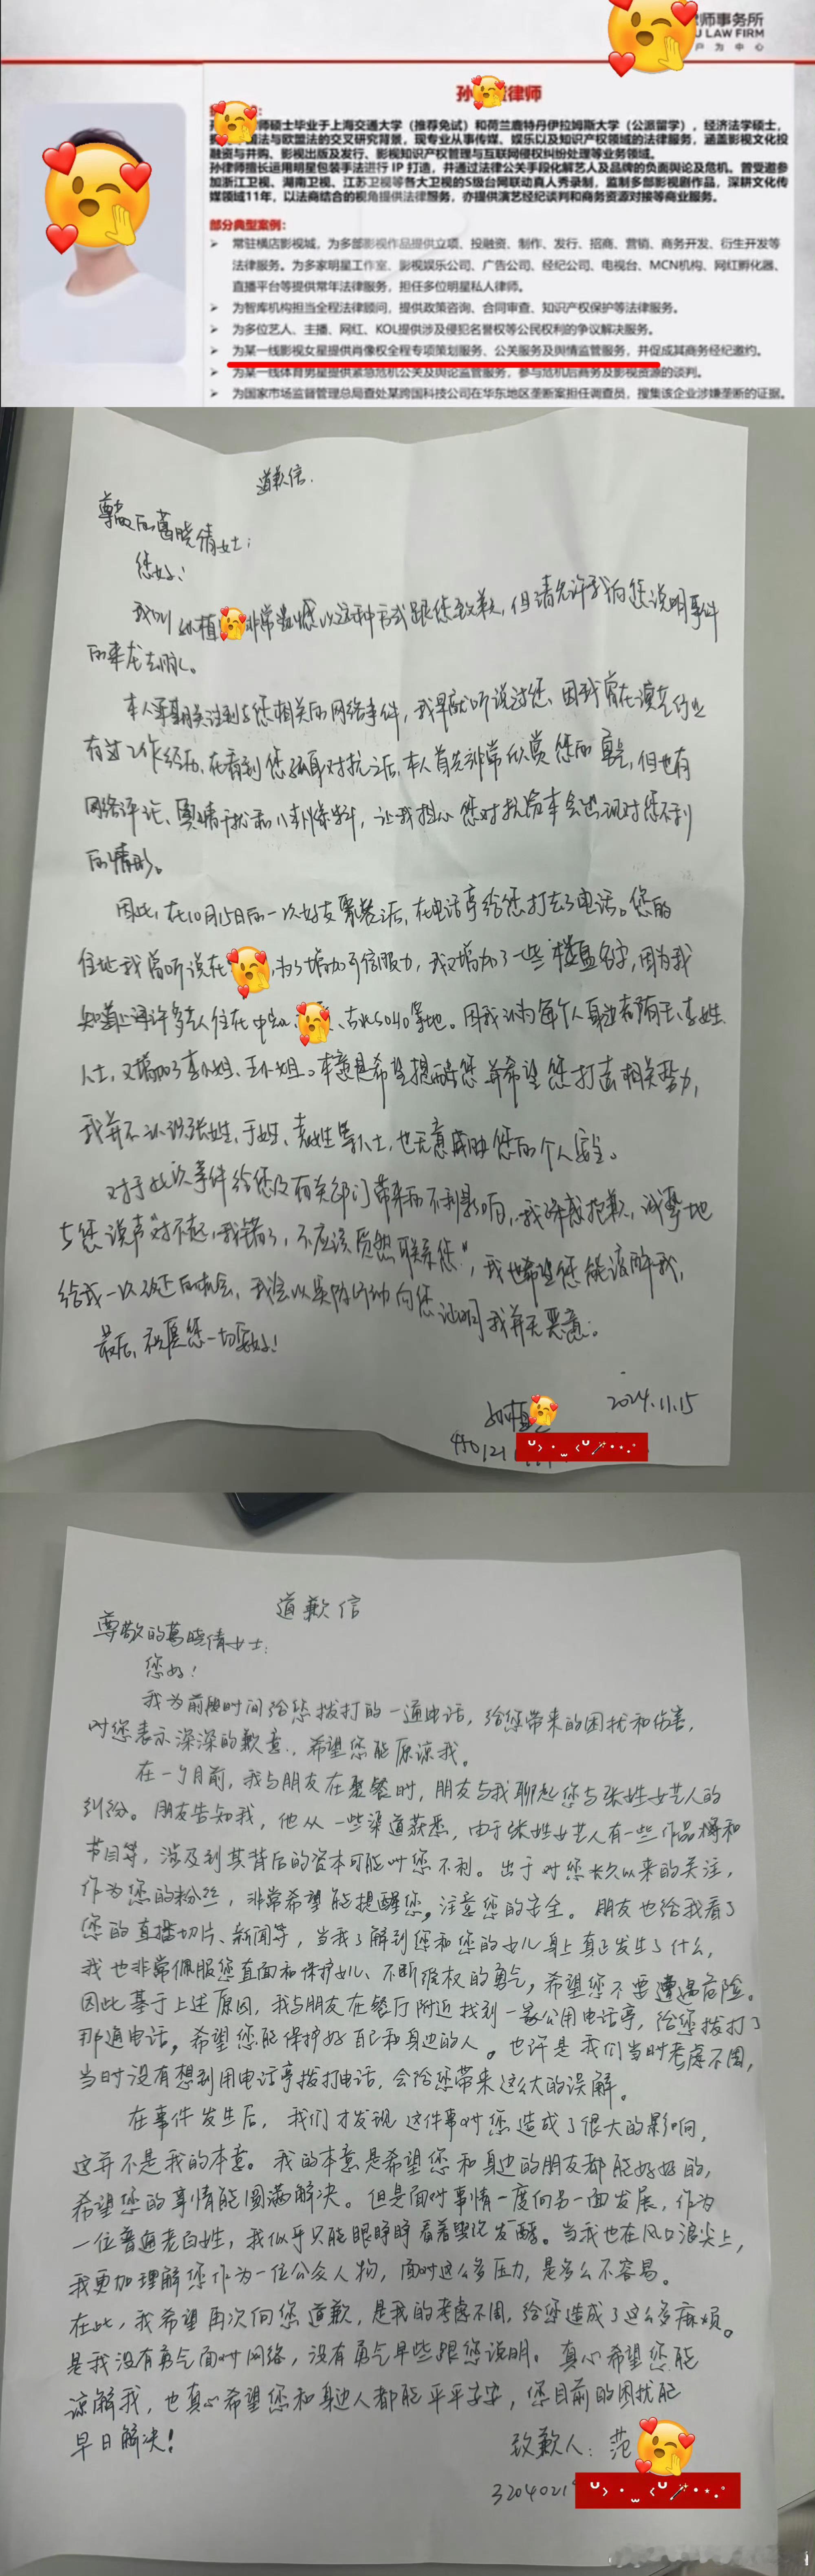 师事务所
U LAW FIRM
户 为 中 心
孙 律师
师硕士毕业于上海交通大学（推荐免试）和荷兰鹿特丹伊拉姆斯大学（公派留学），经济法学硕士，
国法与欧盟法的交叉研究背景，现专业从事传媒、娱乐以及知识产权领域的法律服务，涵盖影视文化投
融资与并购、影视出版及发行、影视知识产权管理与互联网侵权纠纷处理等业务领域。
孙律师擅长运用明星包装手法进行 IP 打造，并通过法律公关手段化解艺人及品牌的负面舆论及危机。曾受邀参
加浙江卫视、湖南卫视、江苏卫视等各大卫视的S级台网联动真人秀录制，监制多部影视剧作品，深耕文化传
媒领域11年，以法商结合的视角提供法律服务，亦提供演艺经纪谈判和商务资源对接等商业服务。
部分典型案例：
常驻横店影视城，为多部影视作品提供立项、投融资、制作、发行、招商、营销、商务开发、衍生开发等
法律服务。为多家明星工作室、影视娱乐公司、广告公司、经纪公司、电视台、MCN机构、网红孵化器、
直播平台等提供常年法律服务，担任多位明星私人律师。
为智库机构担当全程法律顾问，提供政策咨询、合同审查、知识产权保护等法律服务。
为多位艺人、主播、网红、KOL提供涉及侵犯名誉权等公民权利的争议解决服务。
为某一线影视女星提供肖像权全程专项策划服务、公关服务及舆情监管服务，并促成其商务经纪邀约。
为某一线体育男星提供紧急危机公关及舆论监管服务，参与危机后商务及影视资源的谈判。
为国家市场监督管理总局查处某跨国科技公司在华东地区垄断案担任调查员，搜集该企业涉嫌垄断的证据。
道歉信.
尊敬的葛晓倩女士：
您好！
我叫孙植 非常遗憾以这种方式跟您致歉，但请允许我向您说明事件
的来龙去脉。
本人 关注到与您相关的网络事件，我早就听说过您、因我曾在演艺行业
有过工作经历、在看到您 对抗之后，本人首先非常欣赏您的勇气，但也有
网络评论、舆情干扰和八卦爆料，让我担心您对抗资本会出现对您不利
的情形。
因此，在10月15日的一次好友聚餐之后，在电话亭给您打去了电话。您的
住址我曾听说在 ，为了增加可信服力，我又增加了一些楼盘名字，因为我
知道上海许多艺人住在中 、古北SOHO等地。因我认为每个人身边都有王、李姓
人士，又增加了李小姐、王小姐。本意是希望提醒您并希望您打击相关势力，
我并不认识张姓、于姓、袁姓等人士，也无意威胁您的个人安全。
对于此次事件给您及有关部门带来的不利影响，我深感抱歉，诚挚地
与您说声“对不起，我错了，不应该贸然联系您”，我也希望您能谅解我，
给我一次改过的机会，我会以实际行动向您证明我并无恶意。
最后，祝愿您一切安好！
孙植 2024.11.15
道歉信
尊敬的葛晓倩女士：
您好！
我为前段时间给您拨打的一通电话，给您带来的困扰和伤害，
对您表示深深的歉意，希望您能原谅我。
在一个月前，我与朋友在聚餐时，朋友与我聊起您与张姓女艺人的
纠纷。朋友告知我，他从一些渠道获悉，由于张姓女艺人有一些作品 和
节目等，涉及到其背后的资本可能对您不利。出于对您长久以来的关注，
作为您的粉丝，非常希望能提醒您，注意您的安全。朋友也给我看了
您的直播切片、新闻等，当我了解到您和您的女儿身上真正发生了什么，
我也非常佩服您直面和保护女儿、不断维权的勇气，希望您不要遭遇危险。
因此基于上述原因，我与朋友在餐厅附近找到一家公用电话亭，给您拨打了
那通电话，希望您能保护好自己和身边的人。也许是我们当时考虑不周，
当时没有想到用电话亭拨打电话，会给您带来这么大的误解。
在事件发生后，我们才发现这件事对您造成了很大的影响，
这并不是我的本意。我的本意是希望您和身边的朋友都能好好的，
希望您的事情能圆满解决。但是面对事情一度向另一面发展，作为
一位普通老百姓，我似乎只能眼睁睁看着舆论发酵。当我也在风口浪尖上，
我更加理解您作为一位公众人物，面对这么多压力，是多么不容易。
在此，我希望再次向您道歉，是我的考虑不周，给您造成了这么多麻烦。
是我没有勇气面对网络，没有勇气早些跟您说明。真心希望您能
谅解我，也真心希望您和身边人都能平平安安，您目前的困扰能
早日解决！
致歉人：范
3204021